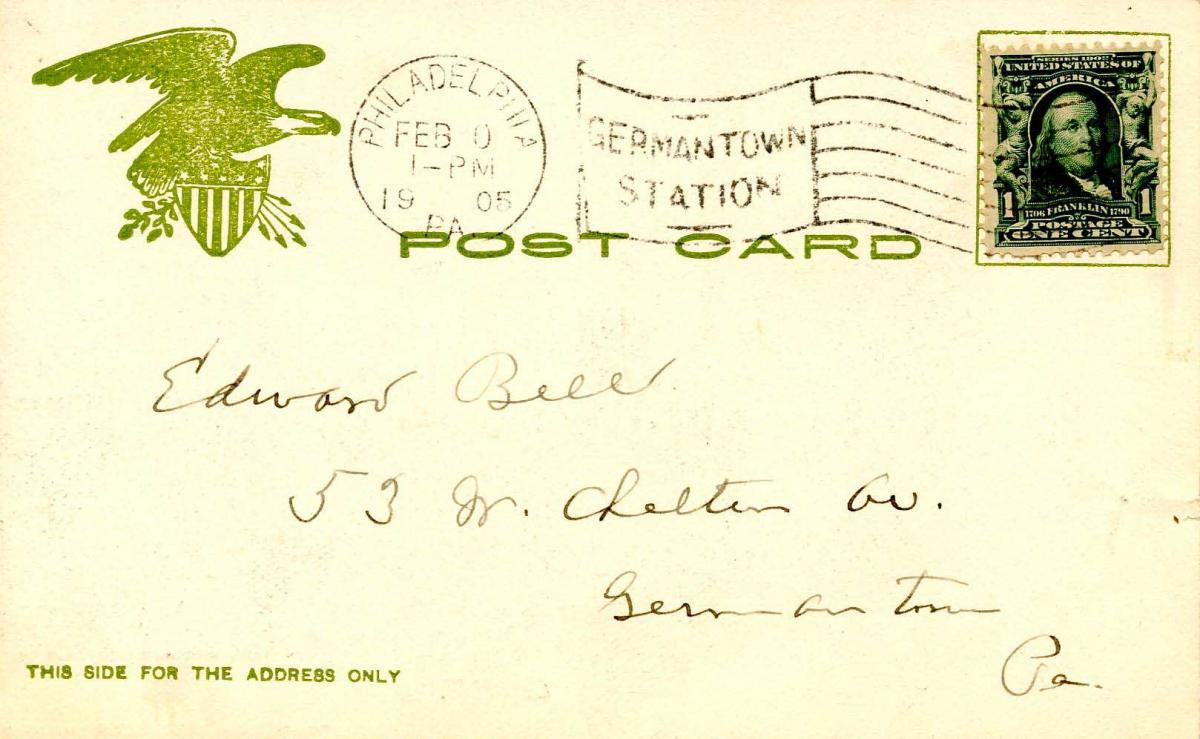 PHILADELPHIA
FEB 0
1-PM
19 05
PA
GERMANTOWN
STATION
SERIES 1902
UNITED STATES OF
AMERICA
1 1706 FRANKLIN 1790 1
POSTAGE
ONE CENT
POST CARD
Edward Bell
53 W. Chelten Av.
Germantown
Pa.
THIS SIDE FOR THE ADDRESS ONLY